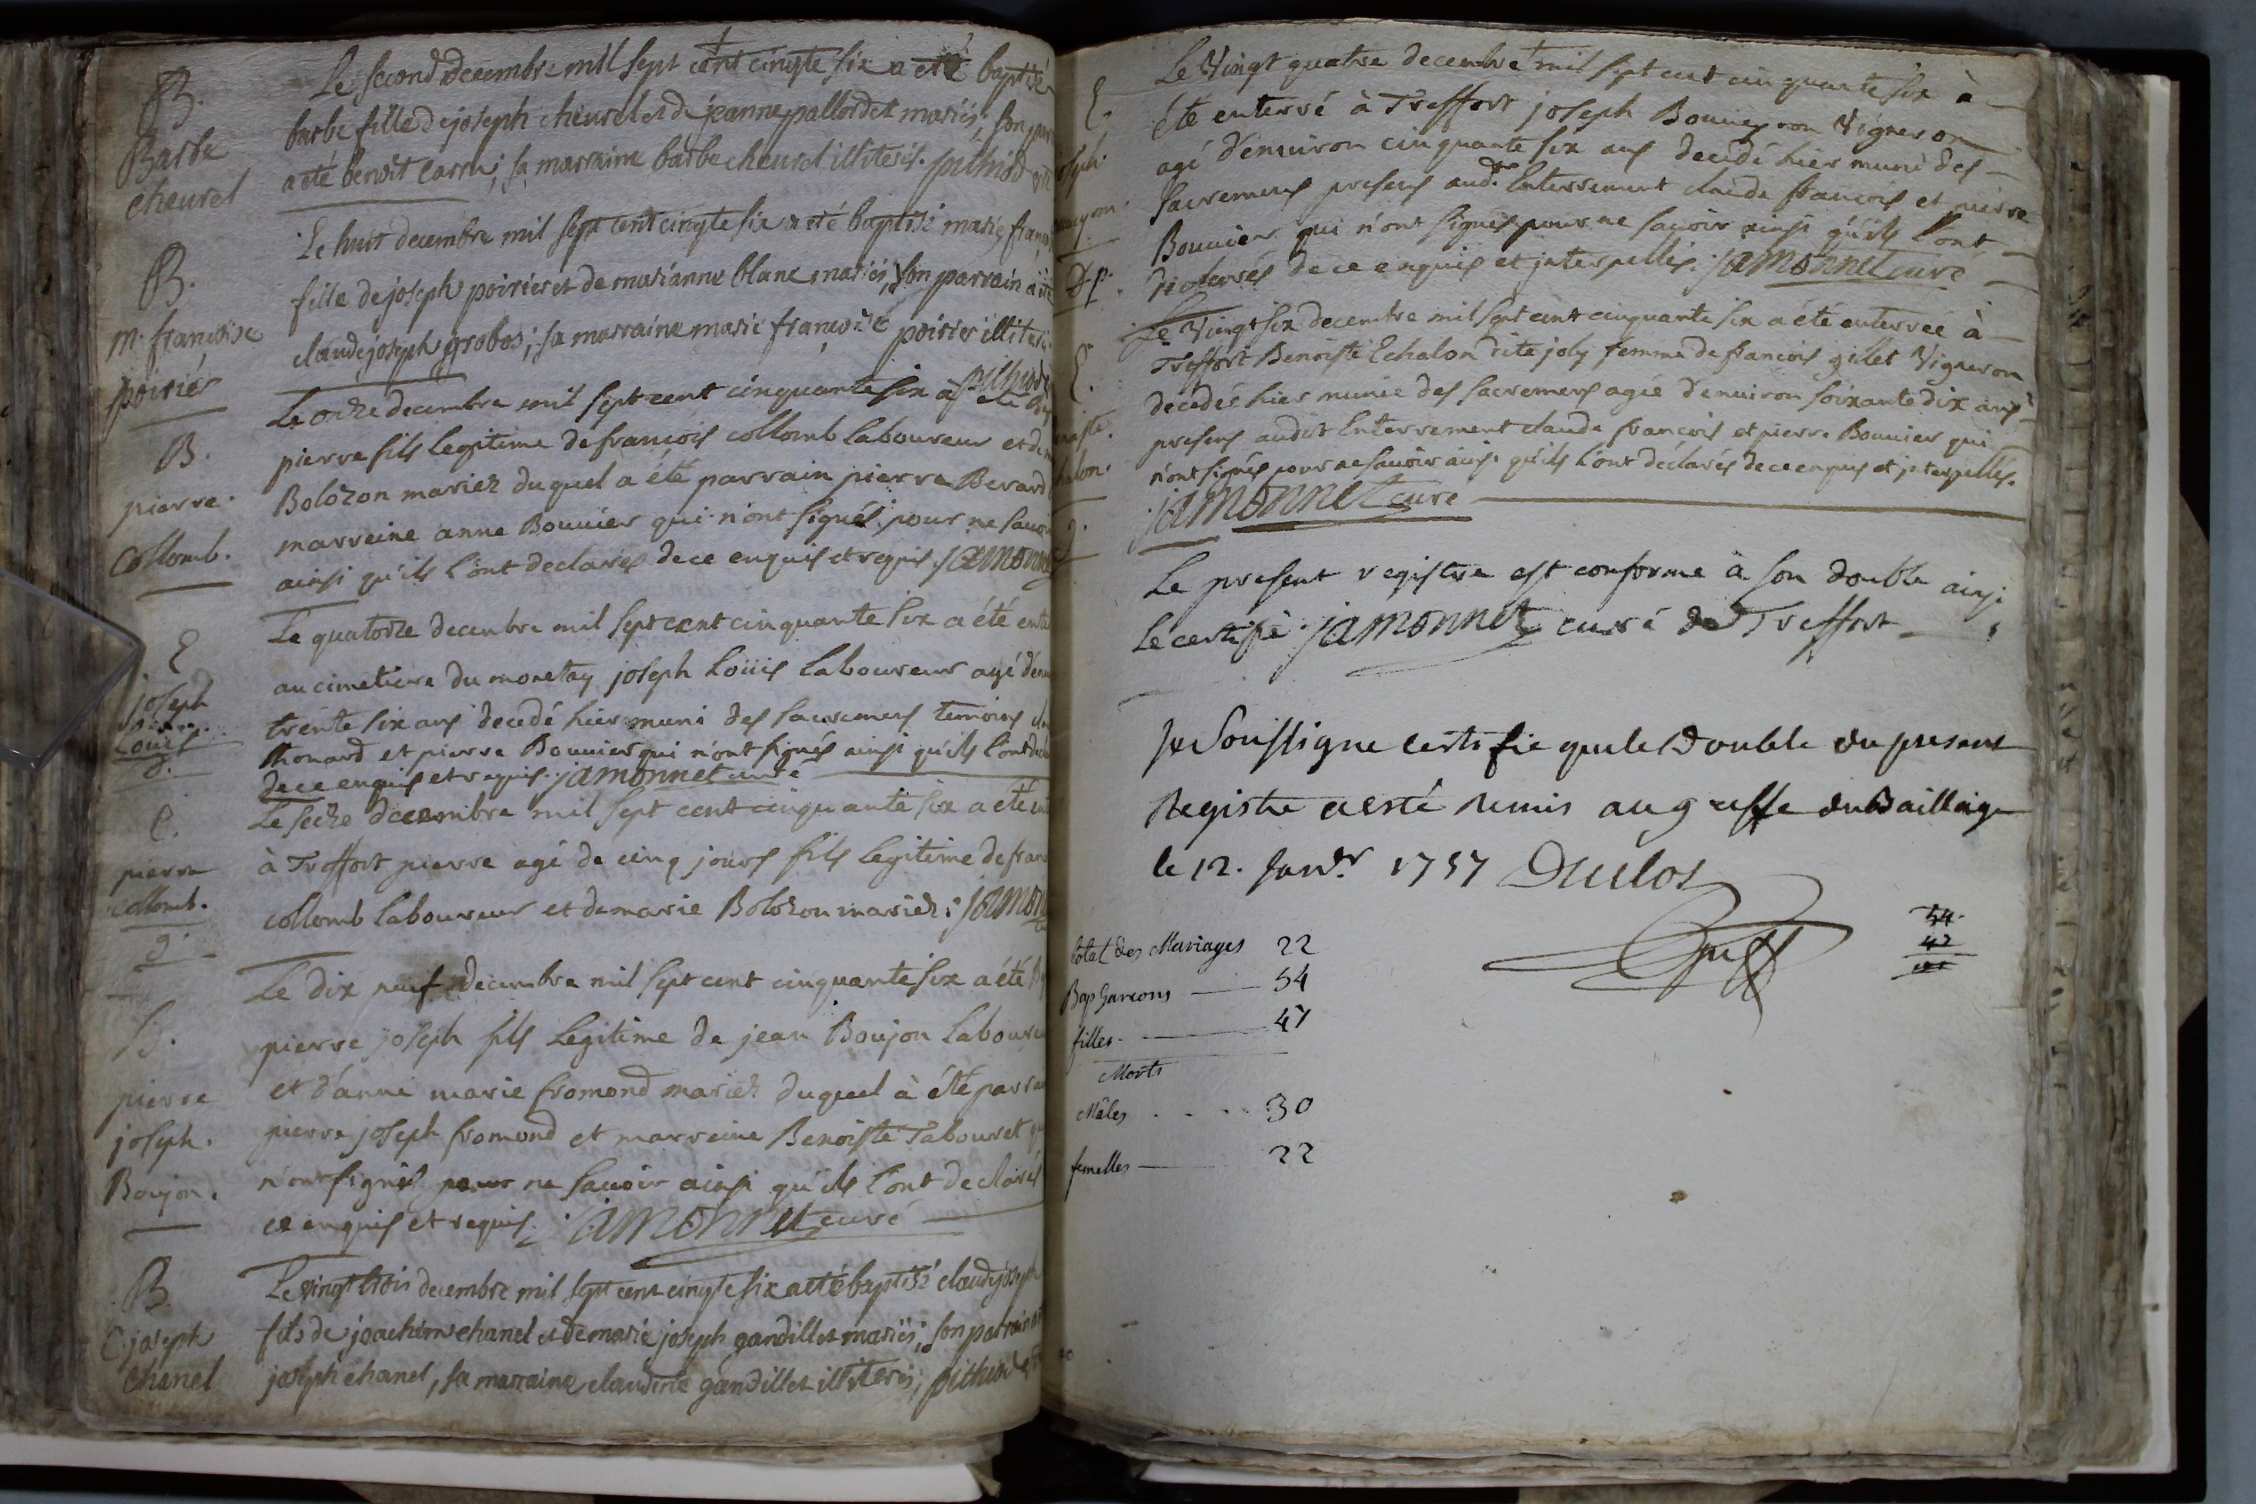 B.
Barbe
cheurel
Le second decembre mil sept cent cinqte six a eté baptisé
barbe fille de joseph cheurel et de jeanne pallordet mariés; son
a eté benoit Carru; sa marraine barbe cheurel illiterés. pithiod
B.
m. françoise
poirier
Le huit decembre mil sept cent cinqte six a eté baptisé marie
fille de joseph poirier et de marianne blanc mariés, son parrain a été
claude joseph grobos; sa marraine marie françoise poirier illiterés
pithiod
B.
pierre.
Collomb.
Le onze decembre mil sept cent cinquante six a été
pierre fils legitime de francois collomb laboureur et de
Bolozon mariez duquel a été parrain pierre Berard
marreine anne Bouuier qui n'ont signés pour ne sauoir
ainsi qu'ils l'ont declarés de ce enquis et requis. jamonnet
E
joseph
Louis
Le quatorze decembre mil sept cent cinquante six a été
au cimetiere du monetay joseph Loüis laboureur agé
trente six ans decedé hier muni des sacremens temoins
thonard et pierre Bouuier qui n'ont signés ainsi qu'ils l'ont
de ce enquis et requis. jamonnet curé
E.
pierre
collomb.
Le seize decembre mil sept cent cinquante six a été
à Treffort pierre agé de cinq jours fils legitime de
collomb laboureur et de marie Bolozon mariez; jamonnet
B.
pierre
joseph.
Boujon.
Le dix neuf decembre mil sept cent cinquante six a été
pierre joseph fils legitime de jean Boujon laboureur
et d'anne marie fromond mariez duquel à été
pierre joseph fromond et marreine Benoiste Tabouret
n'ont signés pour ne sauoir ainsi qu'ils l'ont declarés
ce enquis et requis. jamonnet curé
B.
C. joseph
chanel
Le vingt trois decembre mil sept cent cinqte six a eté baptisé claude joseph
fils de joachim chanel et de marie joseph gandillet mariés; son parrain
joseph chanel, sa marraine claudine gandillet illiterés; pithiod
E.
Le Vingt quatre decembre mil sept cent cinquante six à
été enterré à Treffort joseph Bouueyron Vigneron
agé d'enuiron cinquante six ans decedé hier muni des
sacremens presens aud. Enterrement claude francois et pierre
Bouuier qui n'ont signés pour ne sauoir ainsi qu'ils l'ont
declarés de ce enquis et jnterpellés. jamonnet curé
E.
Le Vingt six decembre mil sept cent cinquante six a été enterrée à
Treffort Benoiste Echalon dite joly femme de francois gillet Vigneron
decedée hier munie des sacremens agée d'enuiron soixante dix ans
presens audit Enterrement claude francois et pierre Bouuier qui
n'ont signés pour ne sauoir ainsi qu'ils l'ont déclarés de ce enquis et jnterpellés.
jamonnet curé
Le present registre est conforme à son double ainsi
le certifié jamonnet curé de Treffort
Je Soussigne certifie que le Double du present
Registre a esté remis au greffe du Bailliage
le 12. Janvr 1757 Duclos
54
47
101
total des Mariages 22
Bap Garcons 54
filles 47
Morts
Mâles 30
femelles 22